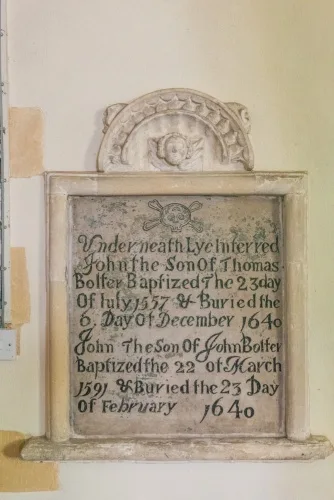 Underneath Lye Interred
John the Son Of Thomas
Bolter Baptized The 23 day
Of July 1557 & Buried the
6. Day Of December 1640
John The Son Of John Bolter
Baptized the 22 of March
1591 & Buried the 23 Day
Of February 1640